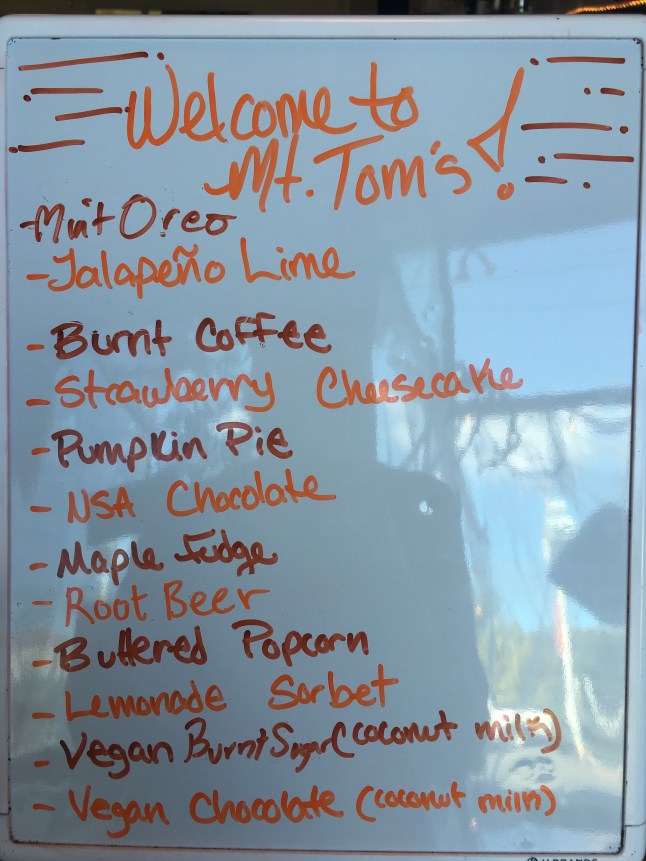 Welcome to
Mt. Tom's!
- Mint Oreo
- Jalapeño Lime
- Burnt Coffee
- Strawberry Cheesecake
- Pumpkin Pie
- NSA Chocolate
- Maple Fudge
- Root Beer
- Buttered Popcorn
- Lemonade Sorbet
- Vegan Burnt Sugar (coconut milk)
- Vegan Chocolate (coconut milk)